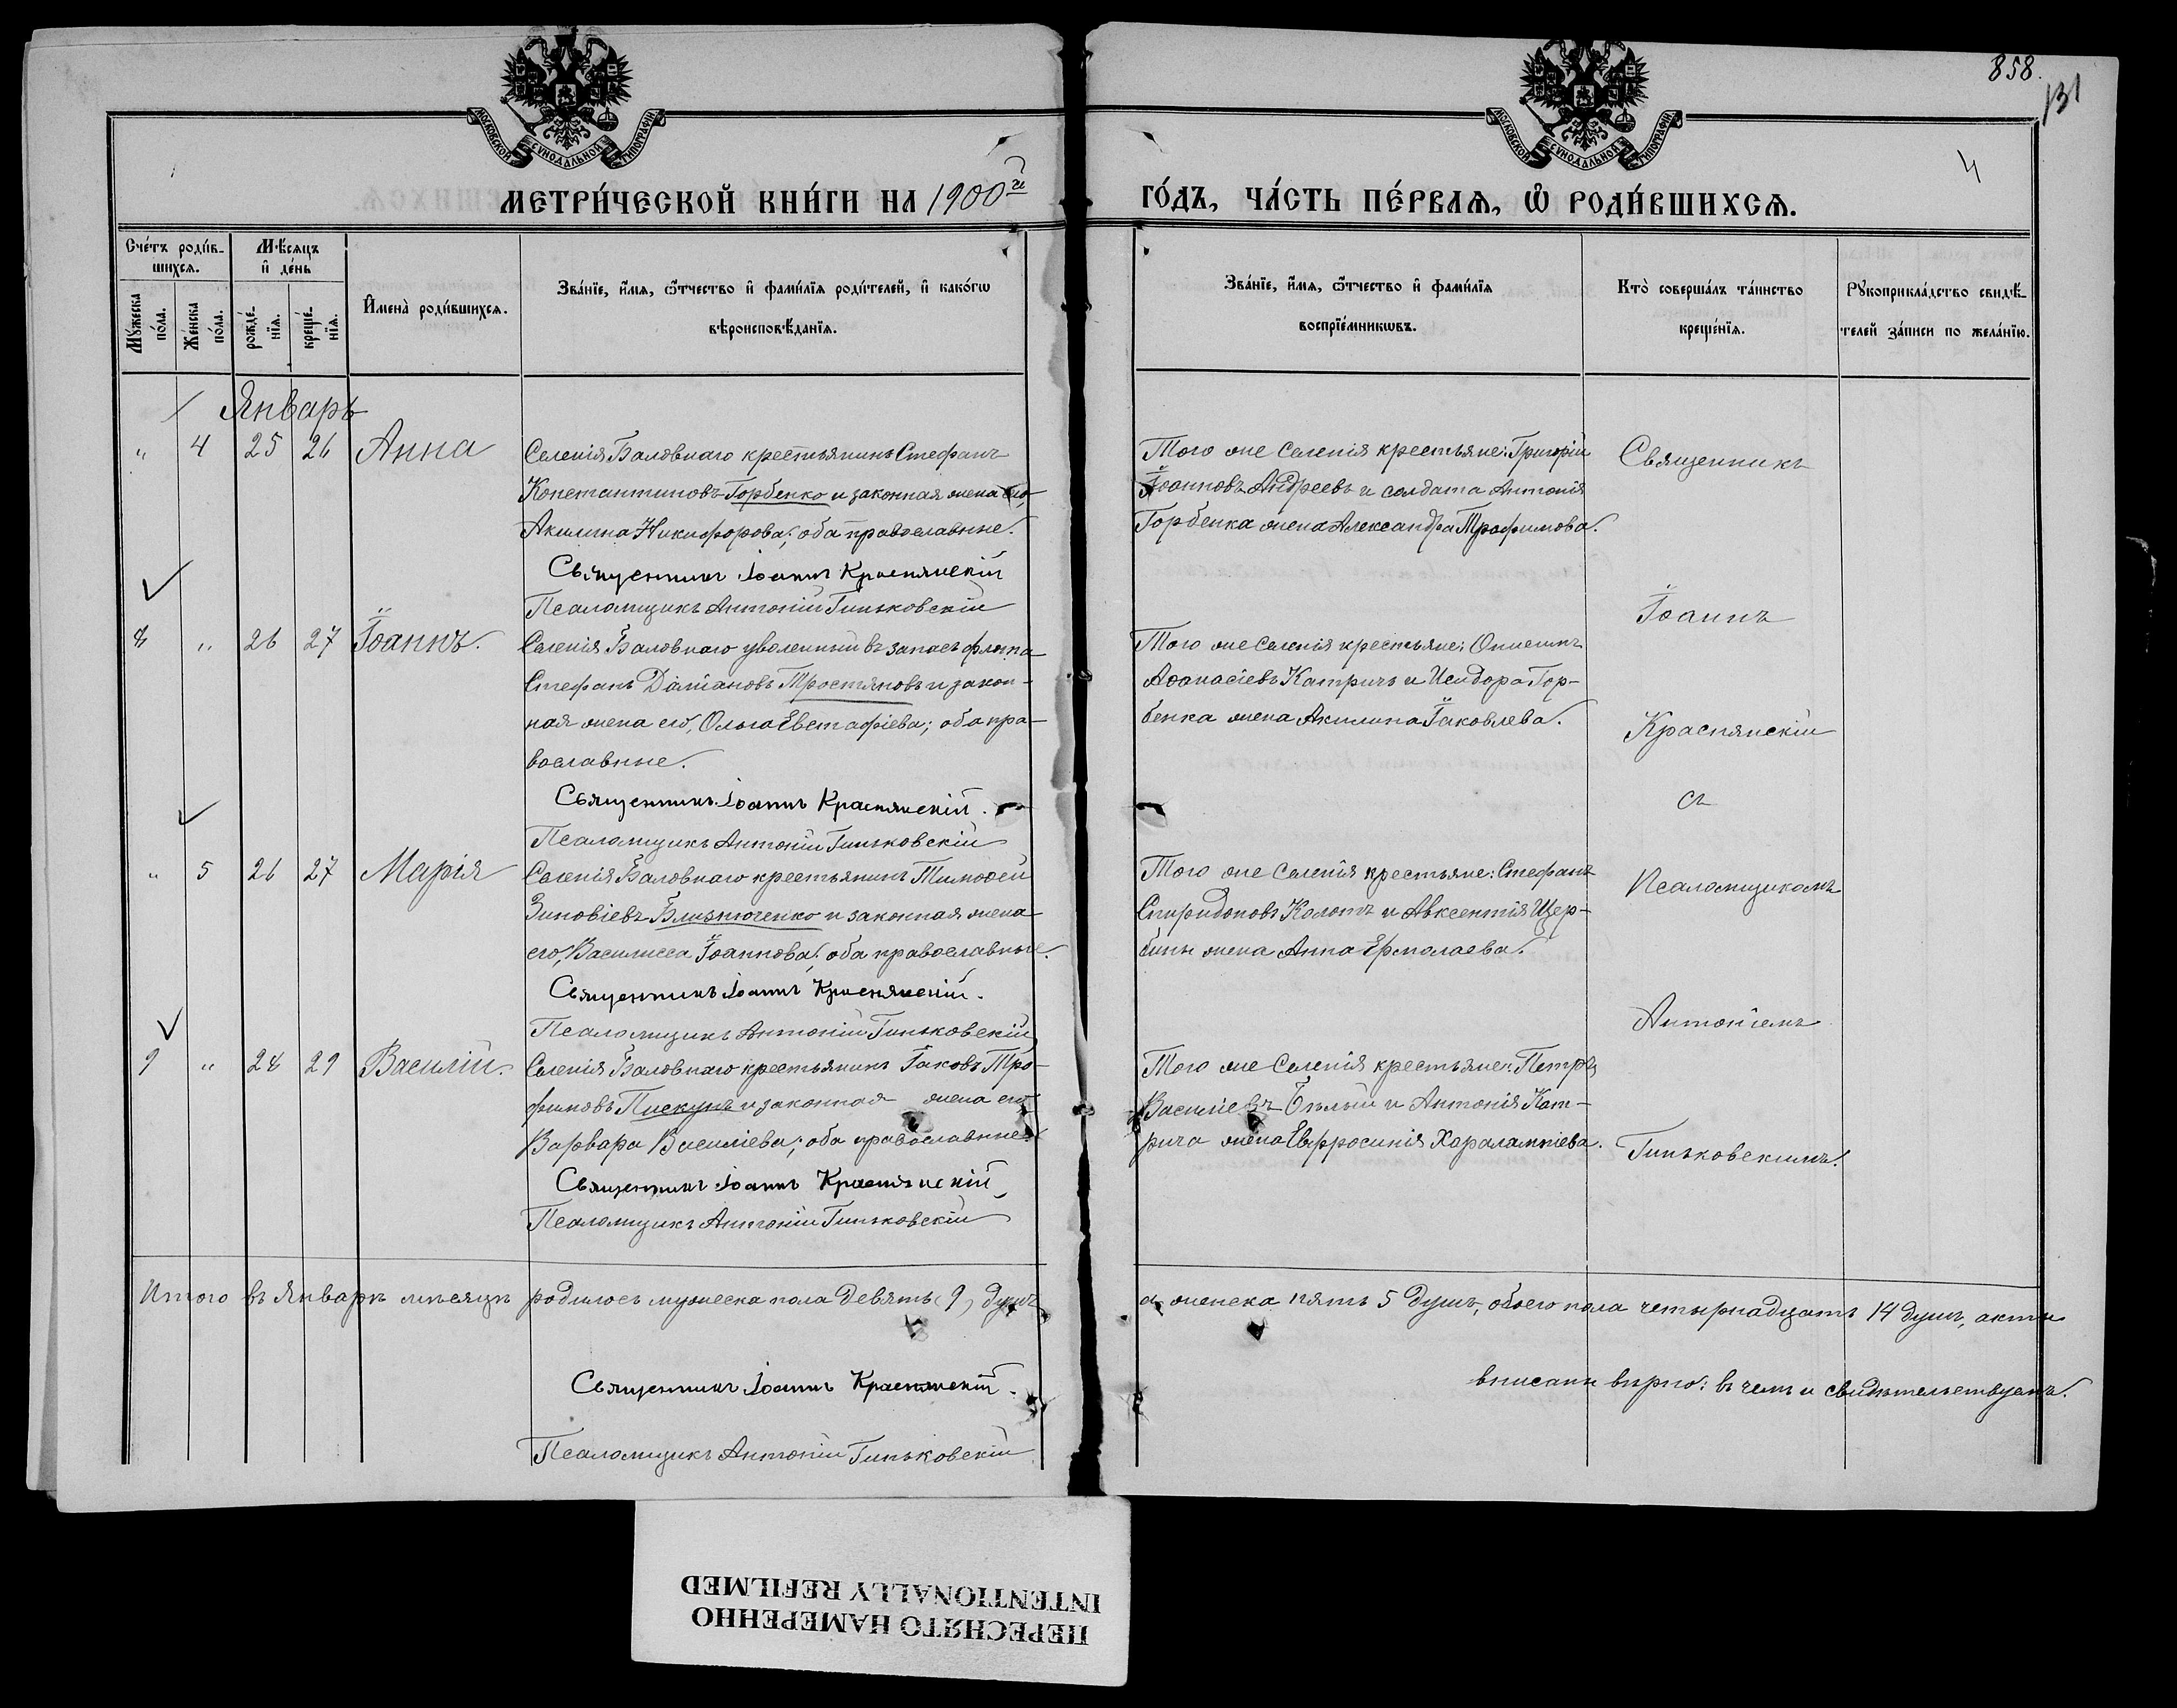 858.
131
4
МОСКОВСКОЙ СѴНОДАЛЬНОЙ ТИПОГРАФІИ
МОСКОВСКОЙ СѴНОДАЛЬНОЙ ТИПОГРАФІИ
МЕТРИ́ЧЕСКОЙ КНИ́ГИ НА 1900й
ГО́ДЪ, ЧА́СТЬ ПЕ́РВАѦ, Ѡ҆ РОДИ́ВШИХСѦ.
Сче́тъ роди́в-
шихсѧ.
Мѣ́сѧцъ
и҆ де́нь
Мꙋ́жеска
по́ла.
Же́нска
по́ла.
рожде́-
нїѧ.
креще́-
нїѧ.
И҆мена̀ роди́вшихсѧ.
Зва́нїе, и҆́мѧ, ѻ҆́тчество и҆ фами́лїѧ роди́телей, и҆ како́гѡ
вѣроисповѣ́данїѧ.
Зва́нїе, и҆́мѧ, ѻ҆́тчество и҆ фами́лїѧ
воспрїе́мникѡвъ.
Кто̀ соверша́лъ та́инство
креще́нїѧ.
Рꙋкоприкла́дство свидѣ́-
телей за́писи по жела́нїю.
Январь
" 4 25 26 Анна
Селенія Баловнаго крестьянинъ Стефанъ
Константиновъ Горбенко и законная жена его,
Акилина Никифорова; оба православные.
Священникъ Іоаннъ Краснянскій
Псаломщикъ Антоній Гиньковскій
Того же селенія крестьяне: Григорій
Іоанновъ Андреевъ и солдата Антонія
Горбенка жена Александра Трофимова.
8 " 26 27 Іоаннъ.
Селенія Баловнаго уволенный въ запасъ флота
Стефанъ Даміановъ Тростяновъ и закон-
ная жена его, Ольга Евстафіева; оба пра-
вославные.
Священникъ Іоаннъ Краснянскій.
Псаломщикъ Антоній Гиньковскій
Того же селенія крестьяне: Онисимъ
Аѳанасіевъ Катричъ и Исидора Гор-
бенка жена Акилина Іаковлева.
" 5 26 27 Марія
Селенія Баловнаго крестьянинъ Тимоѳей
Зиновіевъ Близнюченко и законная жена
его, Василисса Іоаннова; оба православные.
Священникъ Іоаннъ Краснянскій.
Псаломщикъ Антоній Гиньковскій
Того же селенія крестьяне: Стефанъ
Спиридоновъ Колотъ и Авксентія Щер-
бины жена Анна Ермолаева.
9 " 28 29 Василій.
Селенія Баловнаго крестьянинъ Іаковъ Тро-
фимовъ Пискунъ и законная жена его
Варвара Василіева; оба православные
Священникъ Іоаннъ Краснянскій
Псаломщикъ Антоній Гиньковскій
Того же селенія крестьяне: Петръ
Василіевъ Бѣлый и Антонія Кат-
рича жена Евфросинія Харалампіева.
Священникъ
Іоаннъ
Краснянскій
съ
Псаломщикомъ
Антоніемъ
Гиньковскимъ.
Итого въ Январѣ мѣсяцѣ родилось мужеска пола девять (9) душъ
а женска пять 5 душъ, обоего пола четырнадцать 14 душъ, акты
вписаны вѣрно: въ чемъ и свидѣтельствуемъ.
Священникъ Іоаннъ Краснянскій.
Псаломщикъ Антоній Гиньковскій
ПЕРЕСНЯТО НАМЕРЕННО
INTENTIONALLY REFILMED